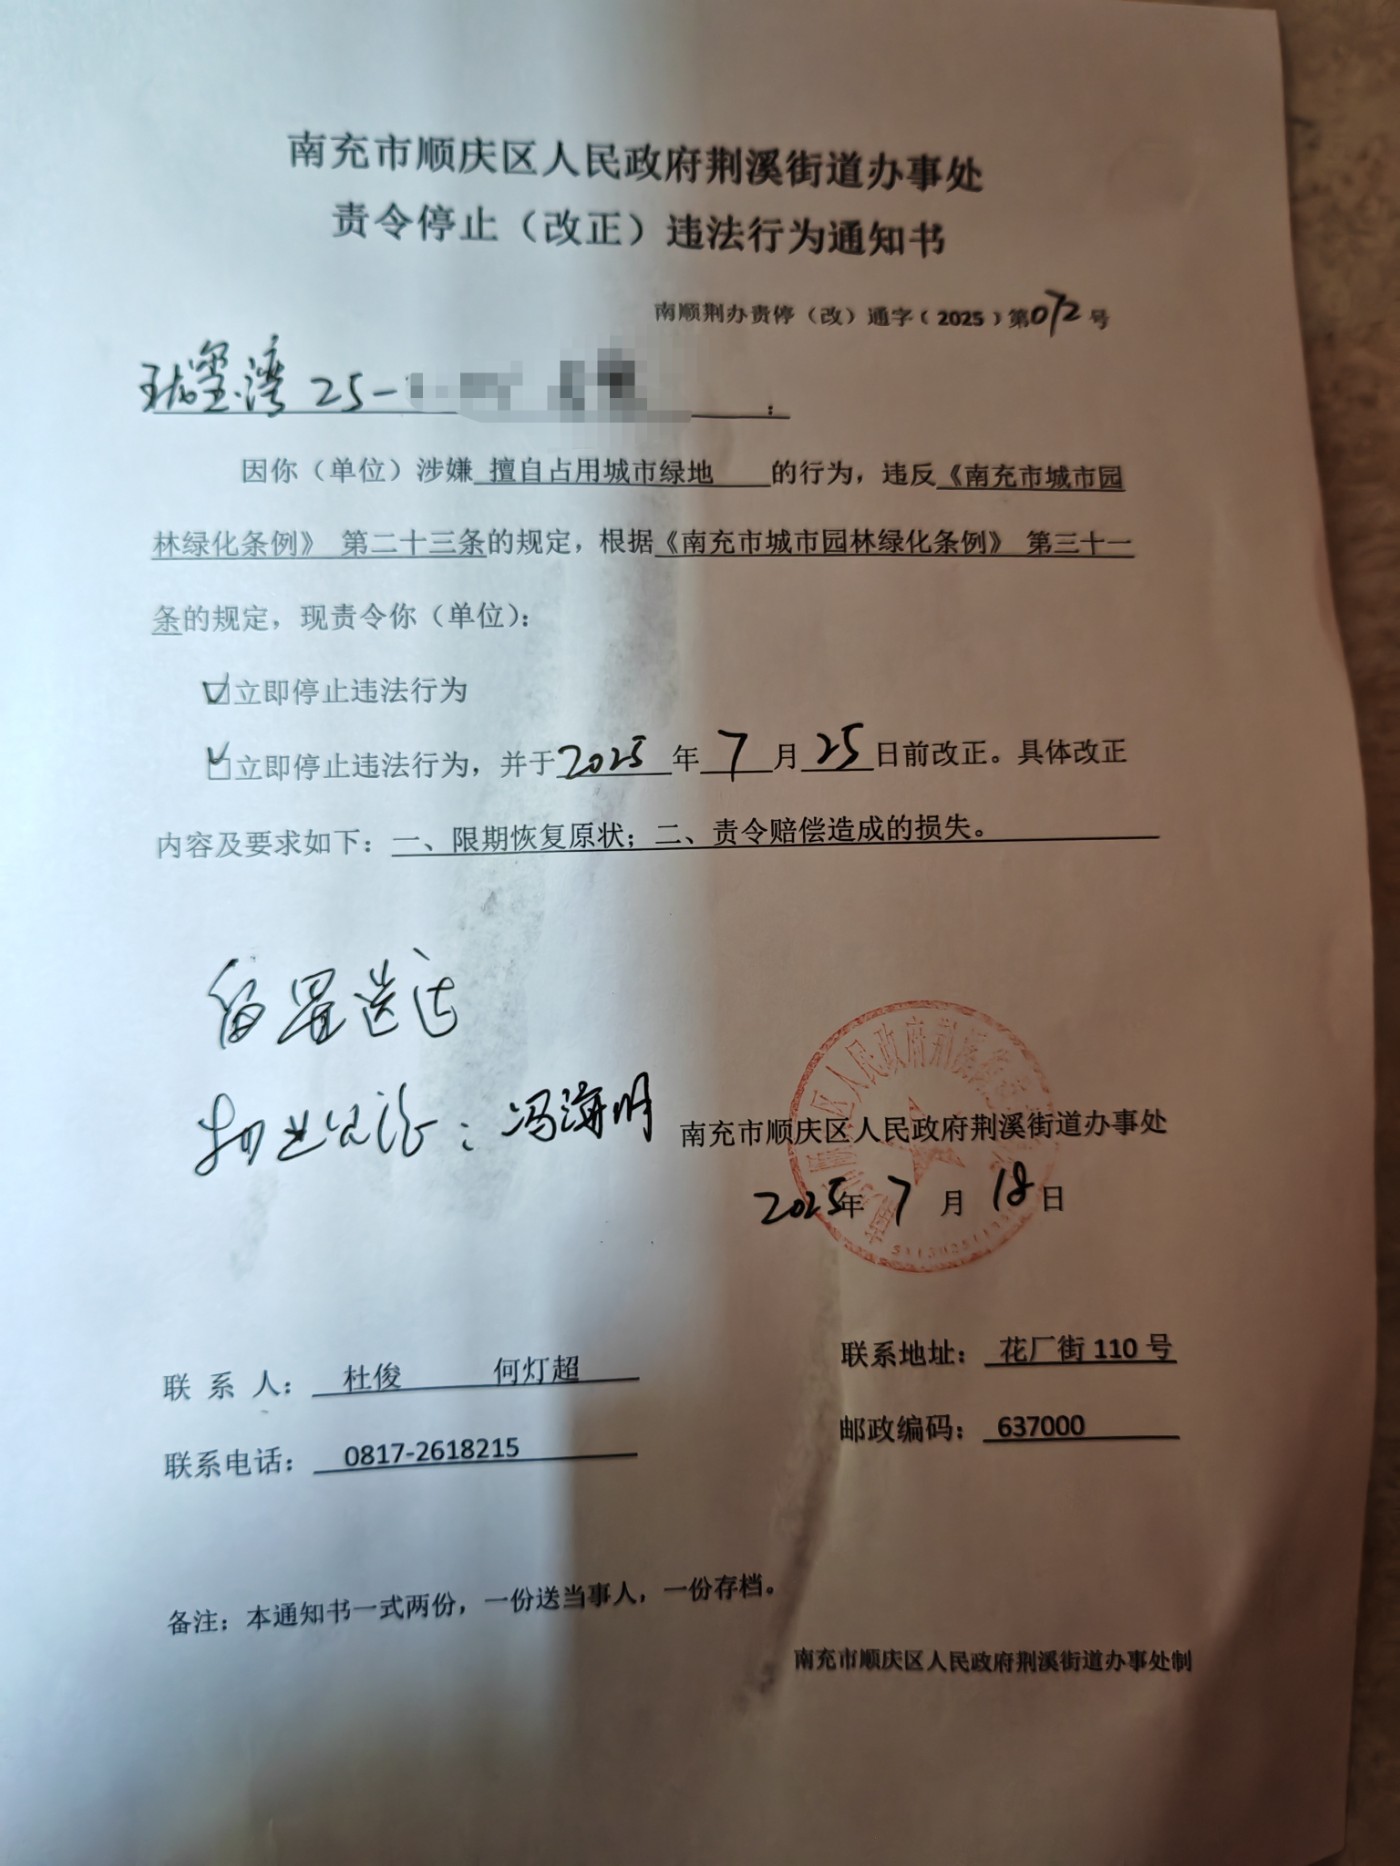 南充市顺庆区人民政府荆溪街道办事处
责令停止（改正）违法行为通知书
南顺荆办责停（改）通字﹝2025﹞第072号
玺湾 25-
：
因你（单位）涉嫌 擅自占用城市绿地 的行为，违反《南充市城市园
林绿化条例》 第二十三条的规定，根据《南充市城市园林绿化条例》 第三十一
条的规定，现责令你（单位）：
☑立即停止违法行为
☑立即停止违法行为，并于2025年7月25日前改正。具体改正
内容及要求如下：一、限期恢复原状；二、责令赔偿造成的损失。
留置送达
物业见证：冯海明
南充市顺庆区人民政府荆溪街道办事处
2025年7月18日
联 系 人： 杜俊 何灯超
联系地址： 花厂街 110 号
联系电话： 0817-2618215
邮政编码： 637000
备注：本通知书一式两份，一份送当事人，一份存档。
南充市顺庆区人民政府荆溪街道办事处制